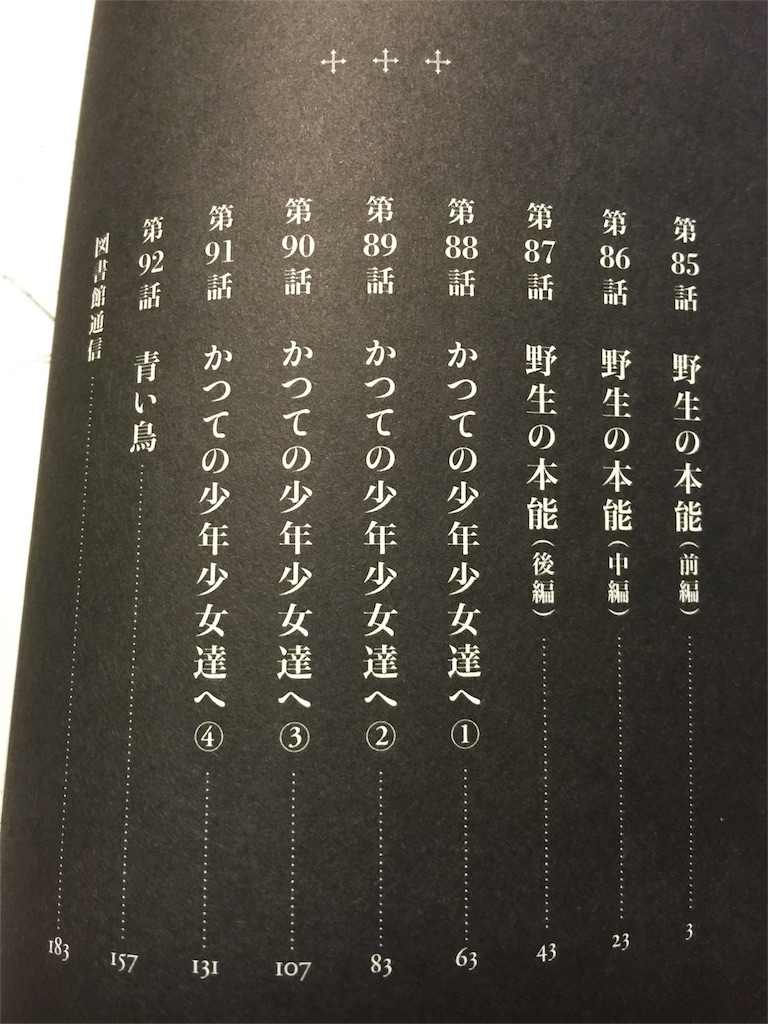 第85話 野生の本能(前編) 3
第86話 野生の本能(中編) 23
第87話 野生の本能(後編) 43
第88話 かつての少年少女達へ① 63
第89話 かつての少年少女達へ② 83
第90話 かつての少年少女達へ③ 107
第91話 かつての少年少女達へ④ 131
第92話 青い鳥 157
図書館通信 183